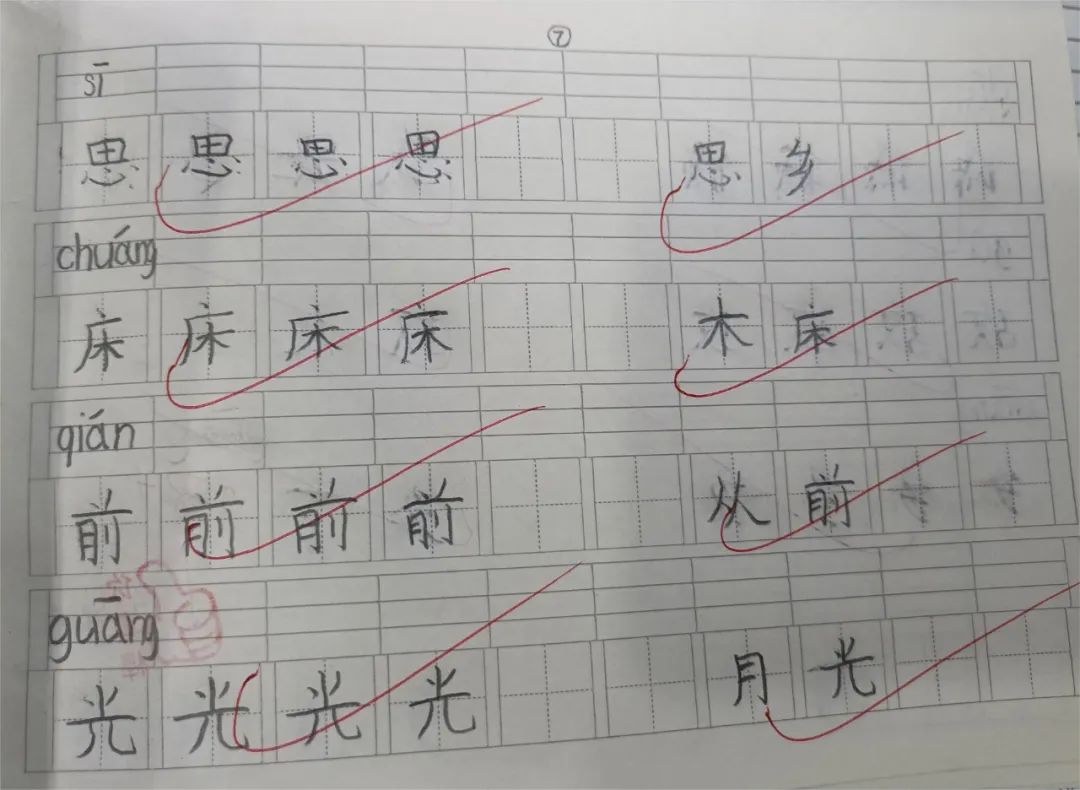 ⑦
sī
思 思 思 思 思 乡
chuáng
床 床 床 床 木 床
qián
前 前 前 前 从 前
guāng
光 光 光 光 月 光